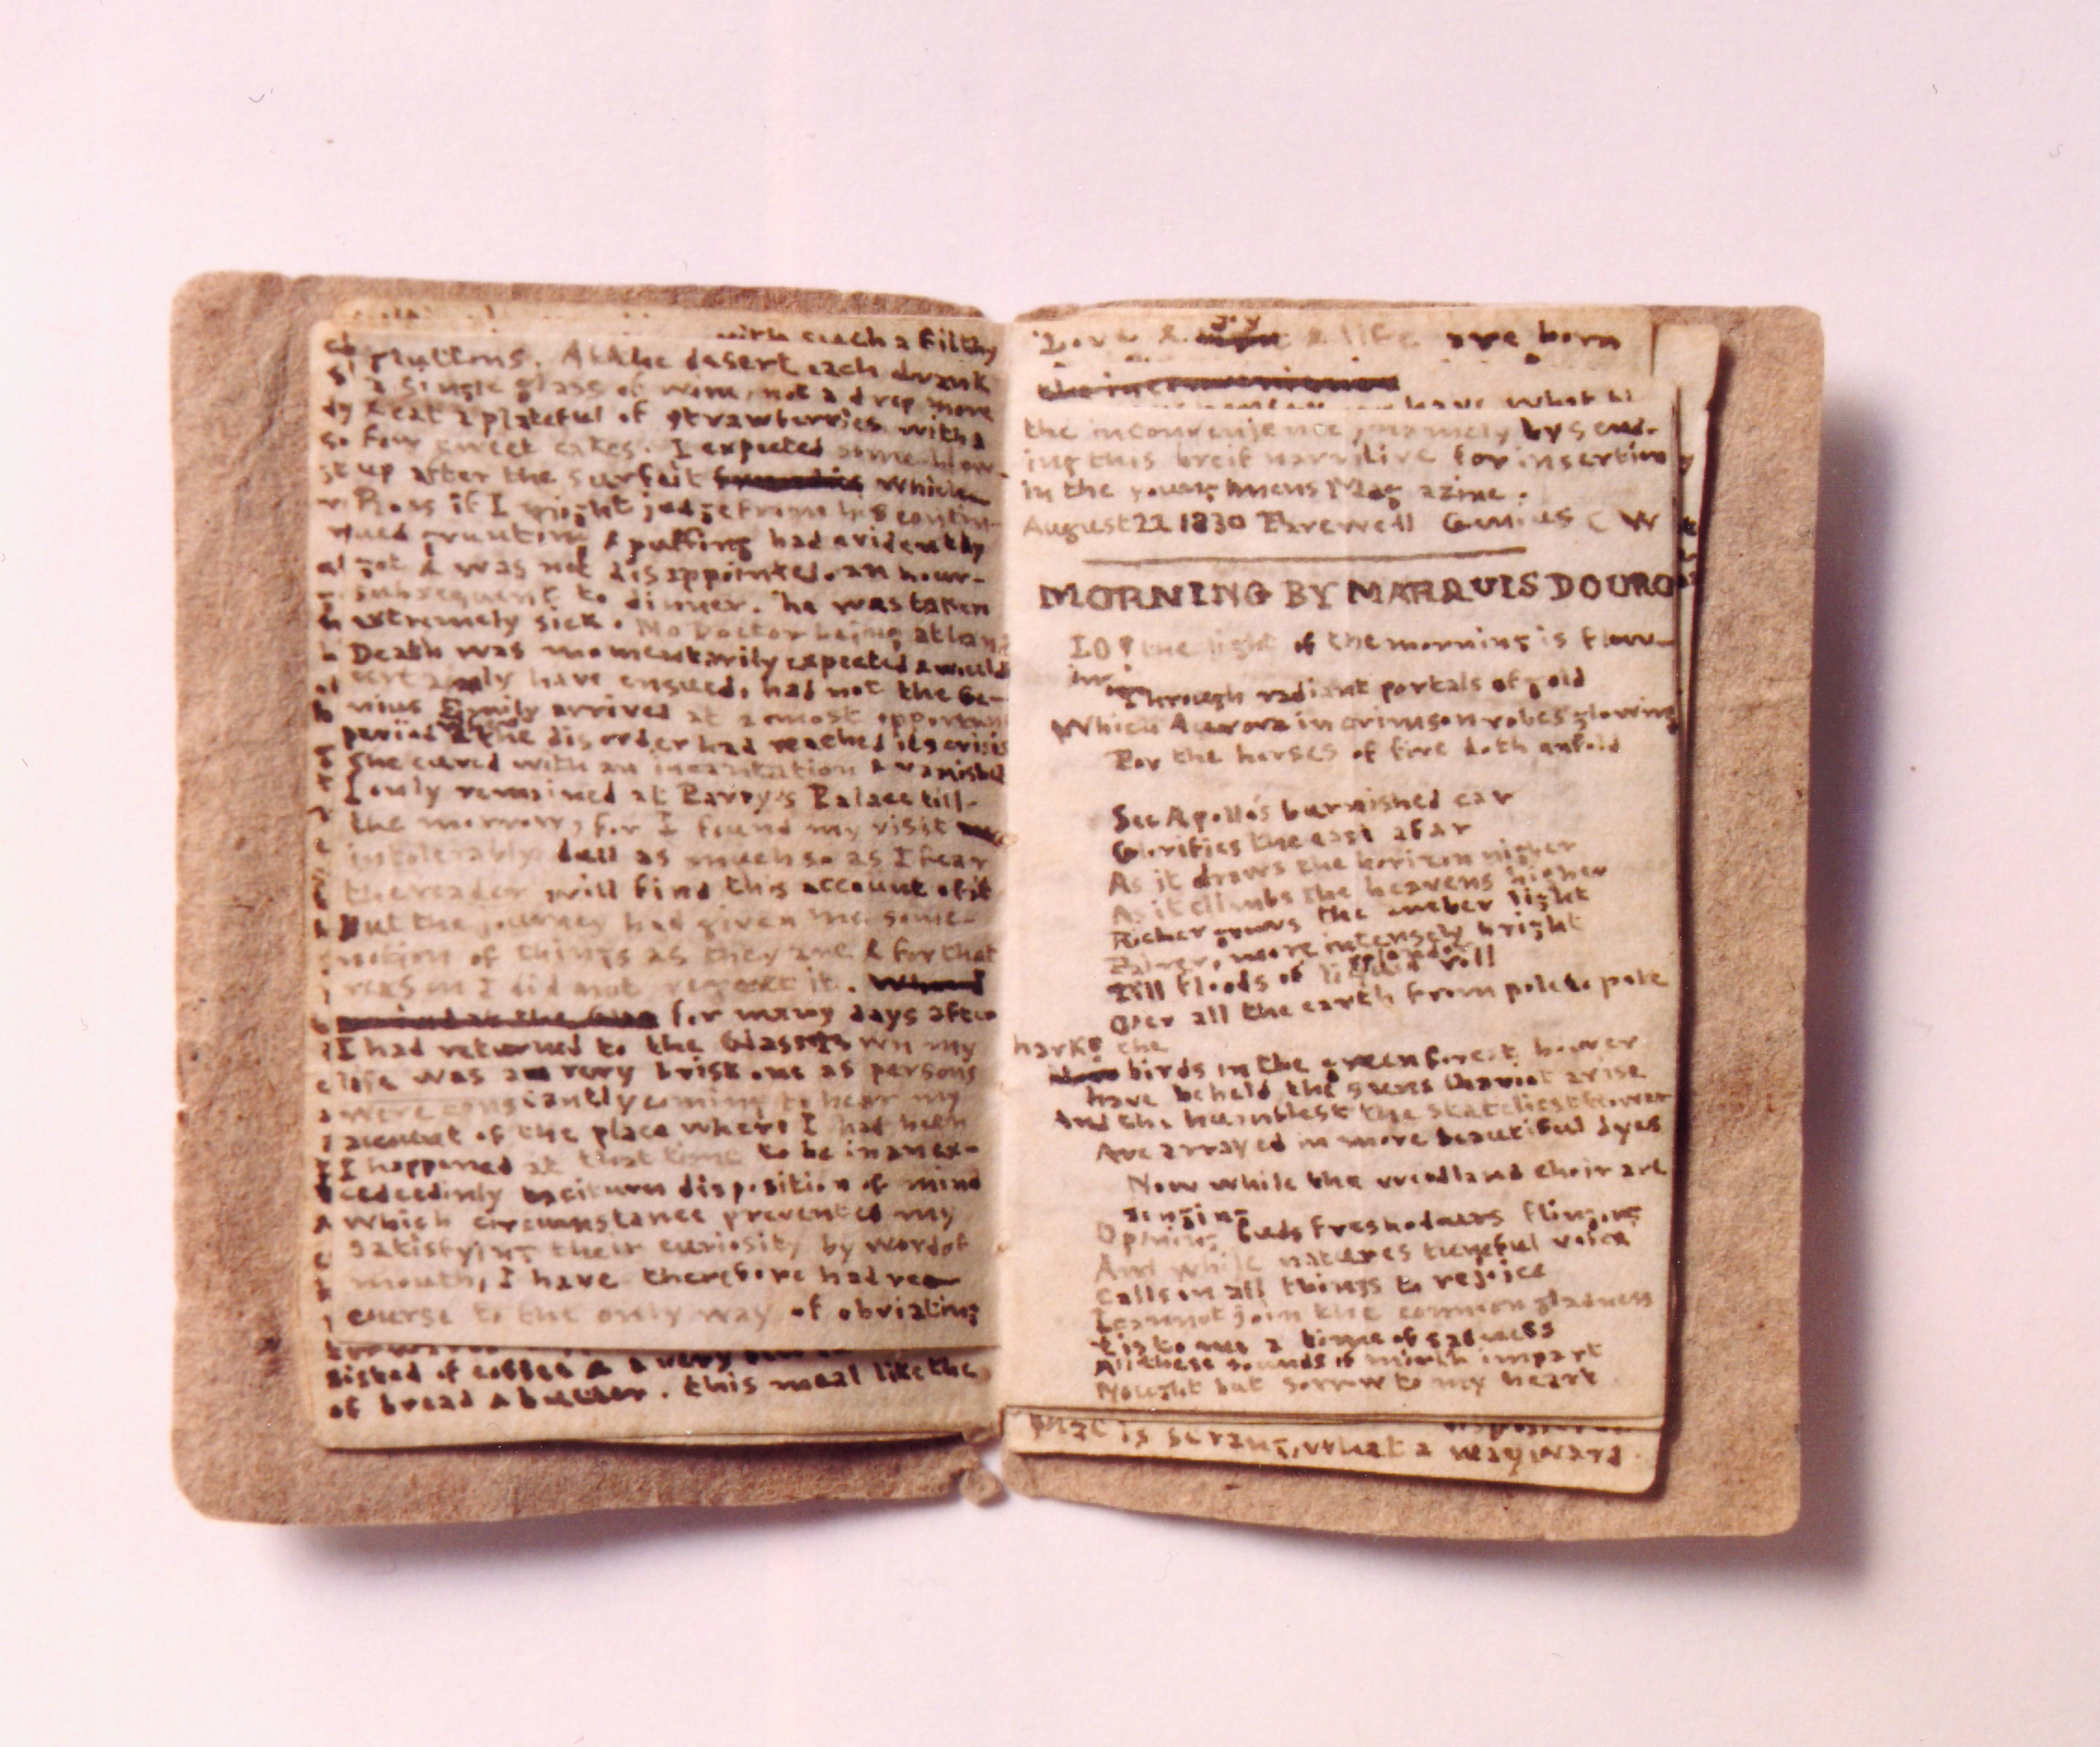 with such a filthy
gluttons. At the desert each drank
a single glass of wine, not a drop more
& eat a plateful of strawberries with a
few sweet cakes. I expected some blow
up after the surfeit which
Ross if I might judge from his contin-
ued grunting & puffing had evidently
got & was not disappointed. an hour-
subsequent to dinner. he was taken
extremely sick. No Doctor being at hand
Death was momentarily expected & would
certainly have ensued, had not the Ge-
nius Emily arrived at a most opportune
period & the disorder had reached its crisis
She cured with an incantation & vanished
I only remained at Parry's Palace till-
the morrow, for I found my visit
intolerably dull as much so as I fear
the reader will find this account of it
But the journey had given me some-
notion of things as they are & for that
reason I did not regret it.
for many days after
I had returned to the Glass wn my
life was a very brisk one as persons
were constantly coming to hear my
account of the place where I had been
I happened at that time to be in an ex-
cedeedinly taciturn disposition of mind
which circumstance prevented my
satisfying their curiosity by word of
mouth, I have therefore had re
curse to the only way of obviating
sisted of coffee & a very
of bread & butter. this meal like the
joy
Love & & life are born
have what
the inconvenjence, namely by send-
ing this breif narrative for insertion
in the young mens Magazine.
August 22 1830 Farewell Genius C W
MORNING BY MARQUIS DOURO
LO! the light of the morning is flow-
ing
Through radiant portals of gold
Which Aurora in crimson robes glowing
For the horses of fire doth unfold
See Apollo's burnished car
Glorifies the east afar
As it draws the horizon nigher
As it climbs the heavens higher
Richer grows the amber light
Fairer, more intensely bright
Till floods of liquid splendor roll
O'er all the earth from pole to pole
hark! the
birds in the green forest bower
have beheld the suns chariot arise
And the humblest the stateliest flower
Are arrayed in more beautiful dyes
Now while the woodland choir are
singing
Opning buds fresh odours flinging
And while natures tuneful voice
calls on all things to rejoice
I cannot join the common gladness
tis to me a time of sadness
All these sounds of mirth impart
Nought but sorrow to my heart
what a wayward